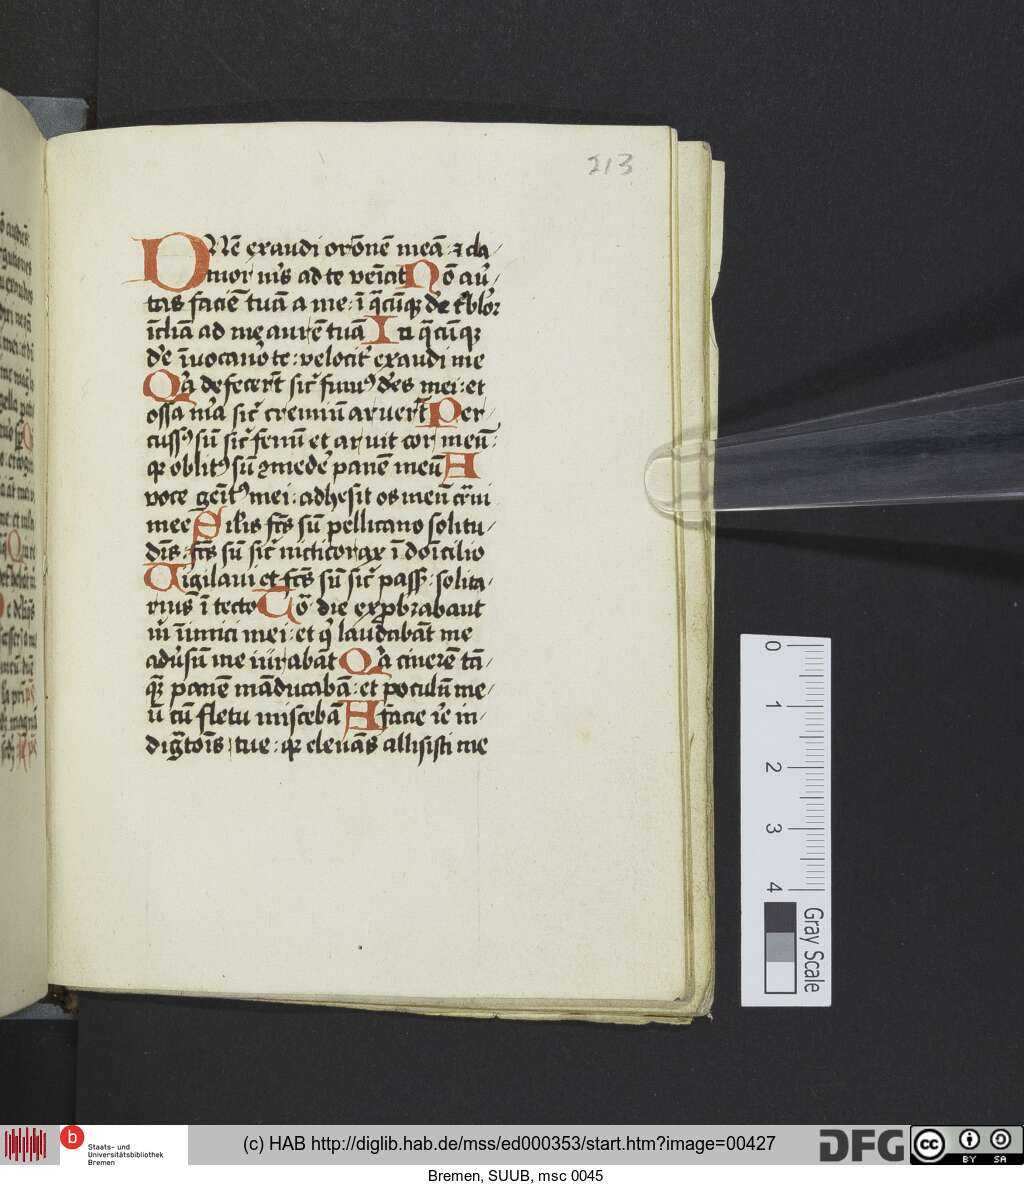 213
DNē exaudi orōnē meā ⁊ cla/
mor mꝰs ad te veīat Nō aū/
tas faciē tuā a me : ī q̄cūqꝫ d̓e t̓blor
īclīa ad me aurē tuā In q̄cūqꝫ
d̓e īuocauo̓ te : velocit̓ exaudi me
Qa̓ defecer̄t sic̓ fumꝰ d̓es mei : et
ossa m̓a sic̓ cremiū aruer̄t Per
cussꝰ sū sic̓ fenū et aruit cor meū :
qꝛ oblitꝰ sū ꝯmede̓ panē meū A
voce gemītꝰ mei : adhesit os meū
mee Silis fc̄s sū pellicano solitu/
dīs : fc̄s sū sic̓ nicticorax ī domīcilio
Uigilaui et fc̄s sū sic̓ pass̓ : solita/
rius ī tecto Tō die exprobrabant
m̓ īimici mei : et q̓ laudabāt me
adūsū me iurabāt Qa̓ cinerē tā/
qꝫ panē māducabā : et poculū me/
ū cū fletu miscebā A facie ire in/
dig̓toīs tue : qꝛ eleuās allisisti me
0
1
2
3
4
Gray Scale
b
Staats- und
Universitätsbibliothek
Bremen
(c) HAB http://diglib.hab.de/mss/ed000353/start.htm?image=00427
DFG
cc
BY SA
Bremen, SUUB, msc 0045